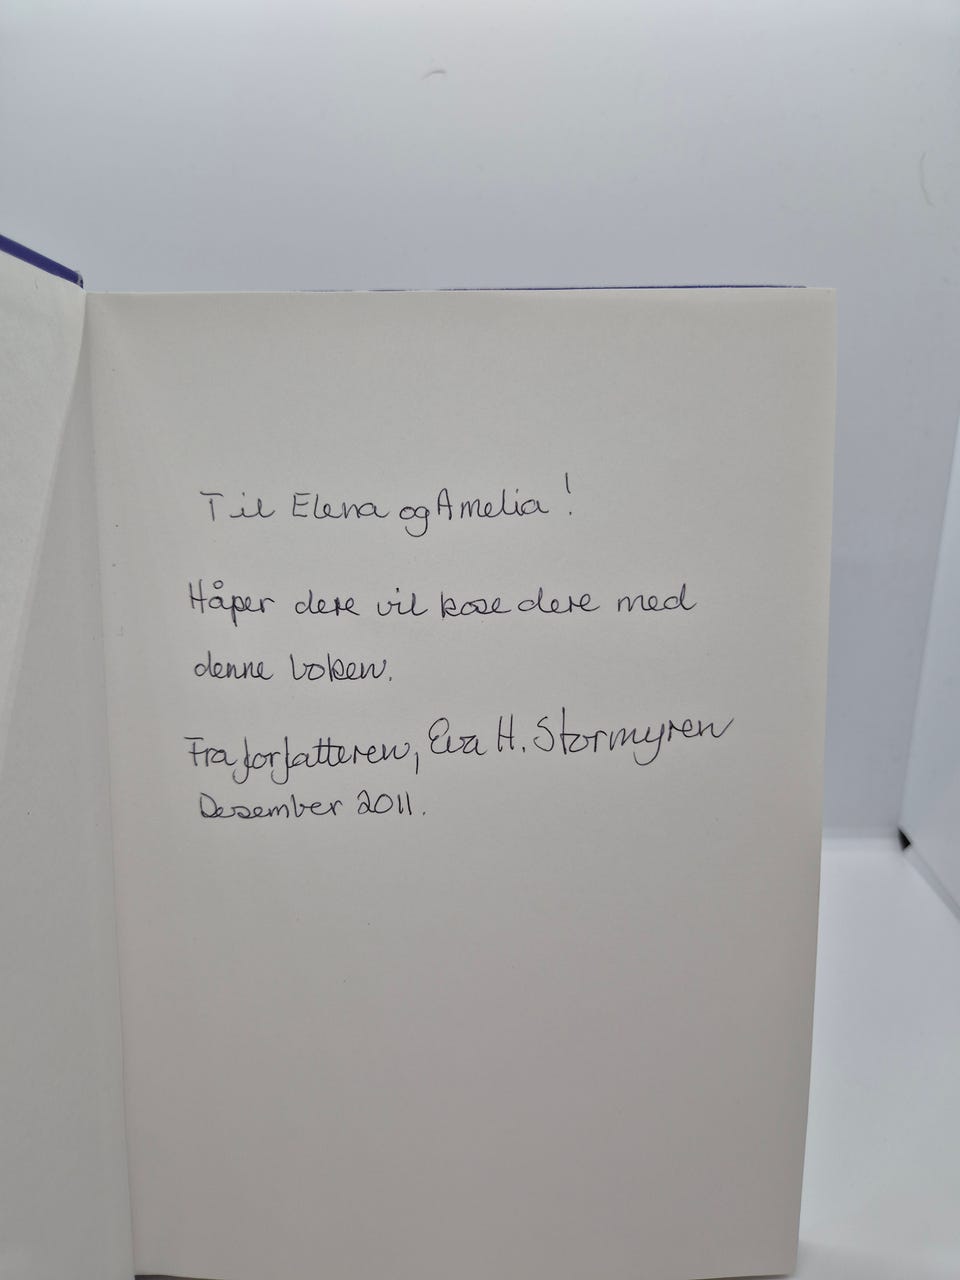 Til Elena og Amelia!
Håper dere vil kose dere med
denne boken.
Fra forfatteren, Eva H. Stormyren
Desember 2011.